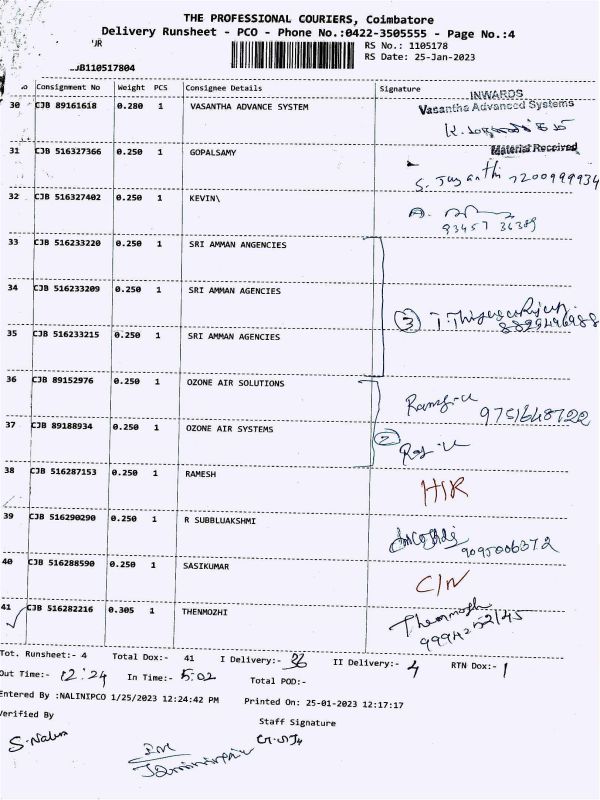 THE PROFESSIONAL COURIERS, Coimbatore
Delivery Runsheet - PCO - Phone No.:0422-3505555 - Page No.:4
RS No.: 1105178
RS Date: 25-Jan-2023
JB110517804
Consignment No Weight PCS Consignee Details Signature
30 CJB 89161618 0.280 1 VASANTHA ADVANCE SYSTEM
INWARDS
Vasantha Advanced Systems
Material Received
31 CJB 516327366 0.250 1 GOPALSAMY
S. Jayanthi 7200999934
32 CJB 516327402 0.250 1 KEVIN\
93457 36389
33 CJB 516233220 0.250 1 SRI AMMAN ANGENCIES
34 CJB 516233209 0.250 1 SRI AMMAN AGENCIES
3
35 CJB 516233215 0.250 1 SRI AMMAN AGENCIES
36 CJB 89152976 0.250 1 OZONE AIR SOLUTIONS
9751648722
37 CJB 89188934 0.250 1 OZONE AIR SYSTEMS
2
38 CJB 516287153 0.250 1 RAMESH
39 CJB 516290290 0.250 1 R SUBBLUAKSHMI
9095006372
40 CJB 516288590 0.250 1 SASIKUMAR
C/N
41 CJB 516282216 0.305 1 THENMOZHI
Thenmozhi
Tot. Runsheet:- 4 Total Dox:- 41 I Delivery:- 36 II Delivery:- 4 RTN Dox:- 1
Out Time:- 12:24 In Time:- 5:02 Total POD:-
Entered By :NALINIPCO 1/25/2023 12:24:42 PM Printed On: 25-01-2023 12:17:17
Verified By Staff Signature
S.Nalini